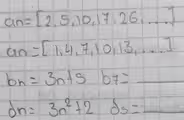 an=[2,5,10,17,26,.....]
an=[1,4,7,10,13,.....]
bn=3n+5 b7=____
dn=3n²+2 d5=____